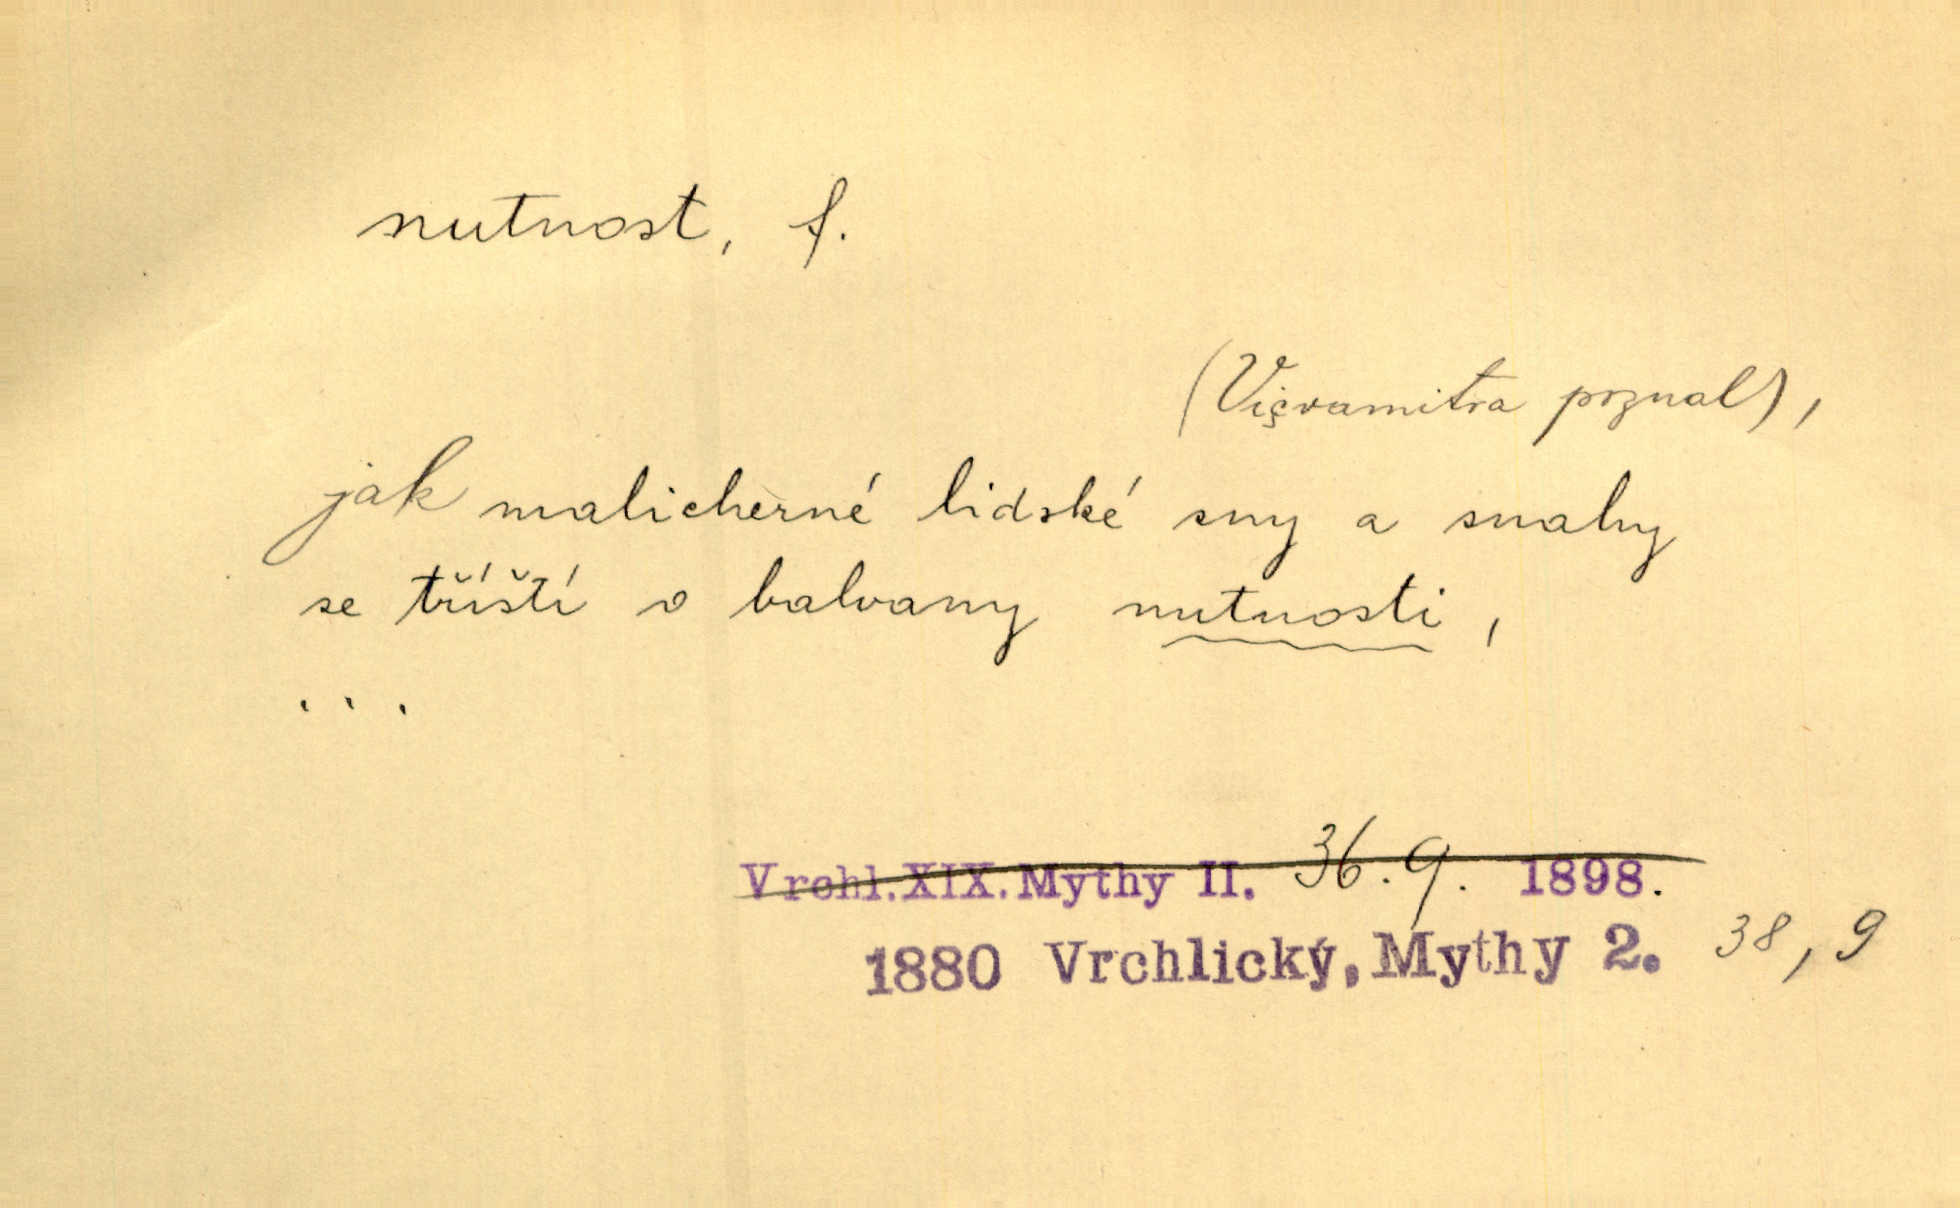 nutnost, f.
(Viçvamitra poznal),
jak malicherné lidské sny a snahy
se tříští o balvany nutnosti,
...
Vrchl. XIX. Mythy II. 36. 9. 1898.
1880 Vrchlický, Mythy 2. 38, 9